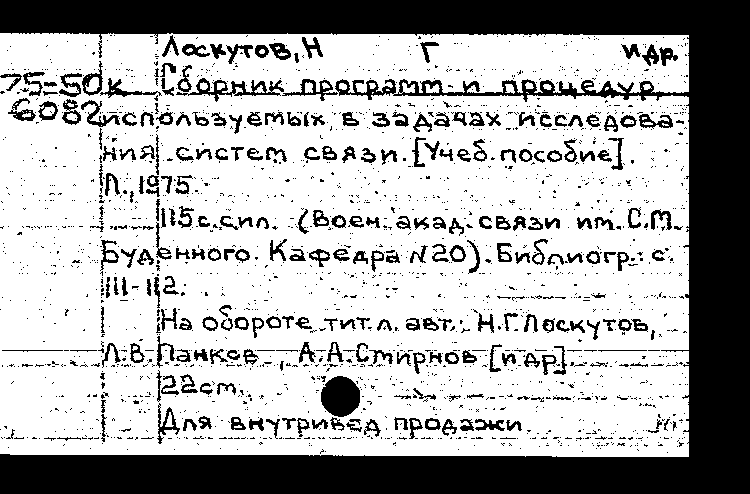 Лоскутов, Н Г и др.
75-50к Сборник программ и процедур,
6082 используемых в задачах исследова-
ния систем связи. [Учеб. пособие].
Л., 1975.
115с. с ил. (Воен. акад. связи им. С.М.
Буденного. Кафедра N20). Библиогр.: с.
111-112.
На обороте тит. л. авт.: Н.Г. Лоскутов,
Л.В. Панков, А.А. Смирнов [и др].
22 cm.
Для внутривед продажи